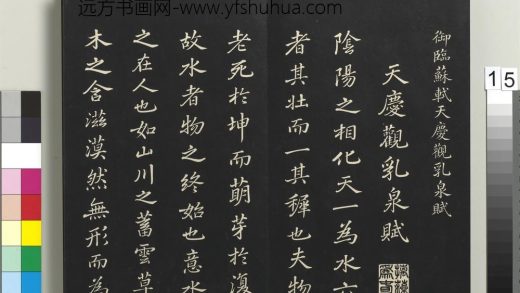 远方书画网-www.yfshuhua.com
御臨蘇軾天慶觀乳泉賦
天慶觀乳泉賦
陰陽之相化天一為水六
者其壯而一其穉也夫物
老死於坤而萌芽於復
故水者物之終始也意水
之在人也如山川之蓄雲草
木之含滋漠然無形而為
15